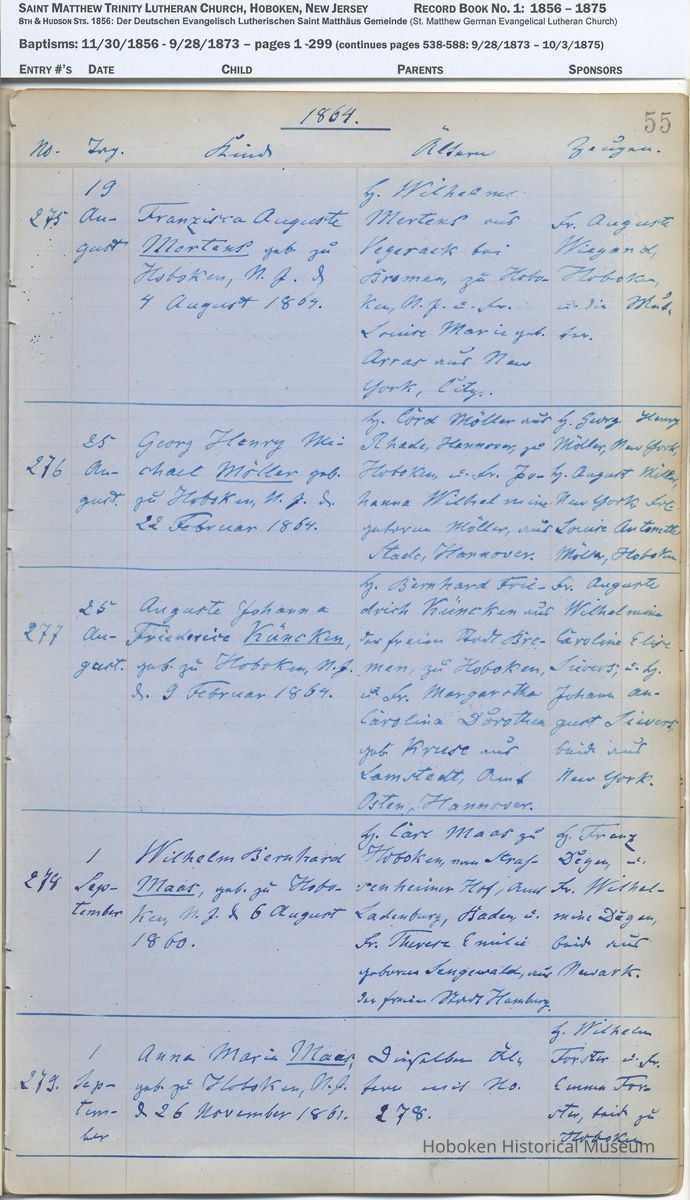 SAINT MATTHEW TRINITY LUTHERAN CHURCH, HOBOKEN, NEW JERSEY RECORD BOOK NO. 1: 1856 – 1875
8TH & HUDSON STS. 1856: Der Deutschen Evangelisch Lutherischen Saint Matthäus Gemeinde (St. Matthew German Evangelical Lutheran Church)
Baptisms: 11/30/1856 - 9/28/1873 – pages 1 -299 (continues pages 538-588: 9/28/1873 – 10/3/1875)
ENTRY #'S DATE CHILD PARENTS SPONSORS
1864. 55
No. Tag. Kind Ältern Zeugen.
275
19
Au-
gust
Franzisca Auguste
Mertens geb. zu
Hoboken, N. J. d.
4 August 1864.
H. Wilhelm
Mertens aus
Vegesack bei
Bremen, zu Hobo-
ken, N. J. u. Fr.
Louise Marie geb.
Arras aus New
York, City.
Fr. Auguste
Wiegand,
Hoboken,
u. die Mut-
ter.
276
25
Au-
gust.
Georg Henry Mi-
chael Möller geb.
zu Hoboken, N. J. d.
22 Februar 1864.
H. Cord Möller aus
Rhade, Hannover, zu
Hoboken, u. Fr. Jo-
hanna Wilhelmine
geboren Möller, aus
Stade, Hannover.
H. Georg Henry
Möller, New York,
H. August Möller,
New York, Frl.
Louise Antonette
Möller, Hoboken.
277
25
Au-
gust.
Auguste Johanna
Friederise Küncken,
geb. zu Hoboken, N. J.
d. 9 Februar 1864.
H. Bernhard Frie-
drich Küncken aus
der freien Stadt Bre-
men, zu Hoboken,
u. Fr. Margaretha
Carolina Dorothea
geb. Kruse aus
Lamstedt, Amt
Osten, Hannover.
Fr. Auguste
Wilhelmine
Caroline Elise
Sievers, u. H.
Johann Au-
gust Sievers,
beide aus
New York.
278
1
Sep-
tember
Wilhelm Bernhard
Maas, geb. zu Hobo-
ken, N. J. d. 6 August
1860.
H. Carl Maas zu
Hoboken, vom Stras-
senheimer Hof, Amt
Ladenburg, Baden, u.
Fr. Therese Emilie
geboren Sengewald, aus
der freien Stadt Hamburg.
H. Franz
Degen, u.
Fr. Wilhel-
mine Degen,
beide aus
Newark.
279.
1
Sep-
tem-
ber
Anna Maria Maas,
geb. zu Hoboken, N. J.
d. 26 November 1861.
Dieselben Äl-
tern wie No.
278.
H. Wilhelm
Forster u. Fr.
Emma For-
ster, beide zu
Hoboken
Hoboken Historical Museum